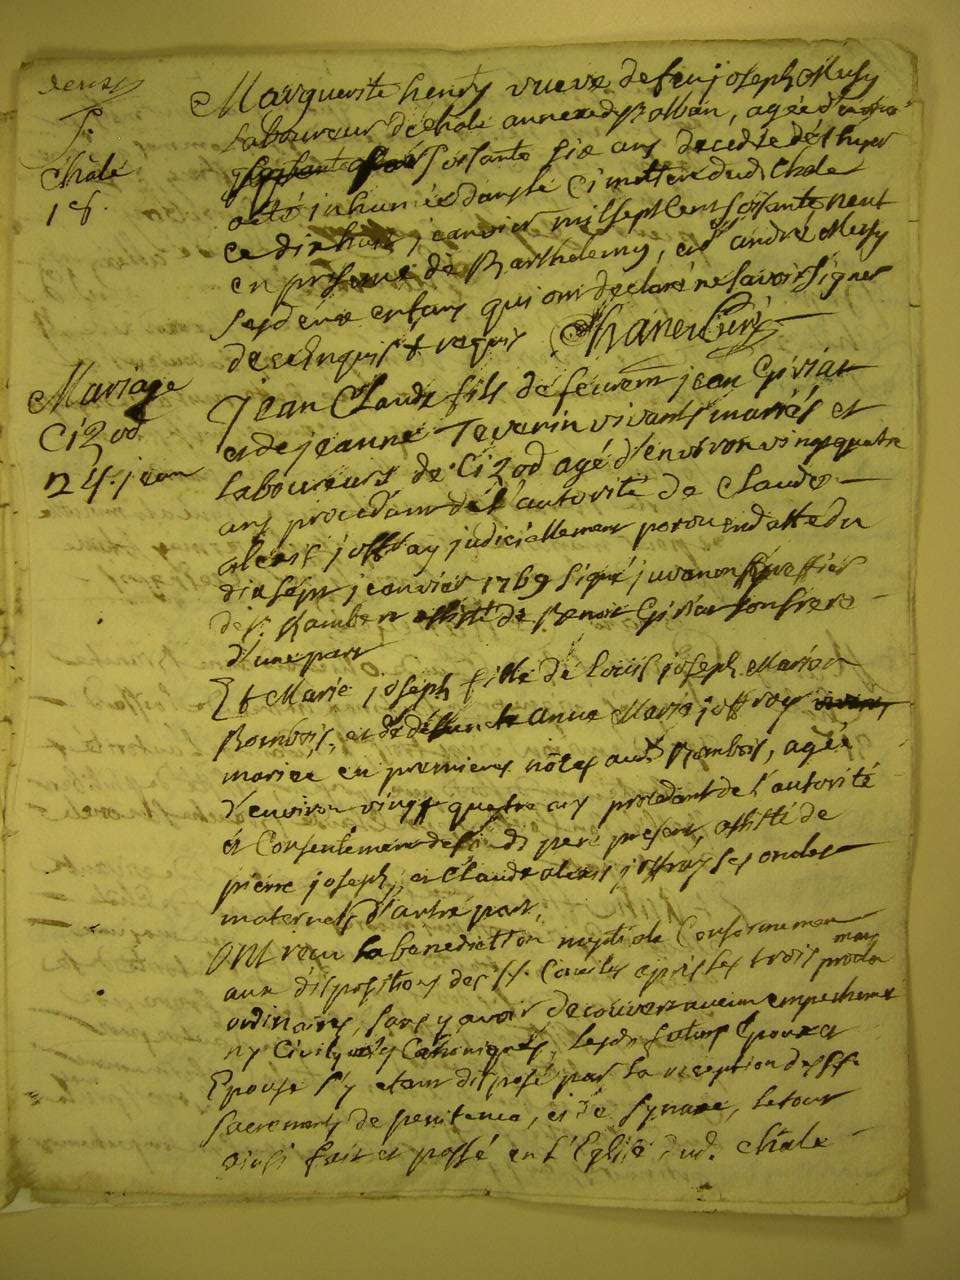 Marguerite henry vueve de feu joseph Mesy
Laboureur de chale annexe de Rolban, agée d'environ
soisante six ans decedée d'hyer
a été inhumée dans le Cimettiere dud. Chale
ce dixhuit jeanvier mil sept cent soisante neuf
en presence de Barthelemy, et andré Mesy
ses deux enfans qui ont declaré ne savoir signer
de ce enquis et requis
Chale
18.
Mariage
Cizod
24. jean
jean Claude fils de feu jean Griviat
et de jeanne Tevenin vivants mariés et
Laboureurs de Cizod agé d'environ vingt quatre
ans procedant de l'autorité de Claude
alexis joffray judiciellement pourvu en datte du
dix sept jeanvier 1769 signé juvanon greffier
de St. Rambert assisté de Benoit Griviat son frere
d'une part
Et Marie joseph fille de Louis joseph Marion
Rombois, et de défunte anne Marie joffray
mariée en premieres nôces aud. Rombois, agée
d'environ vingt quatre ans procedant de l'autorité
et Consentement de sond. pere present, assisté de
pierre joseph, et Claude alexis joffray ses oncles
maternels d'autre part,
Ont reçu la bénédiction nuptiale Conformement
aux dispositions des SS. Canciles après les trois proclamaons
ordinaires, sans y avoir decouvert aucun empechement
ny Civil, ny Canonique, lesds. futurs Epoux et
Epouse s'y etant disposé par la reception des SS.
sacrements de penitence, et de Synaxe, le tour
ainsi fait et passé en l'Eglise dud. Chale